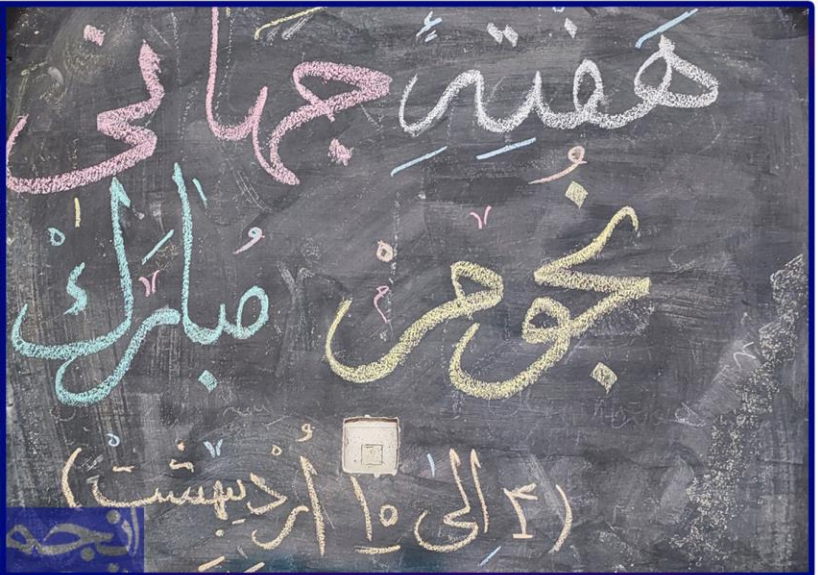 هَفتِهٔ جهانی
نُجوم مُبارَک
(۴ اِلی ۱۰ اُردیبهشت)